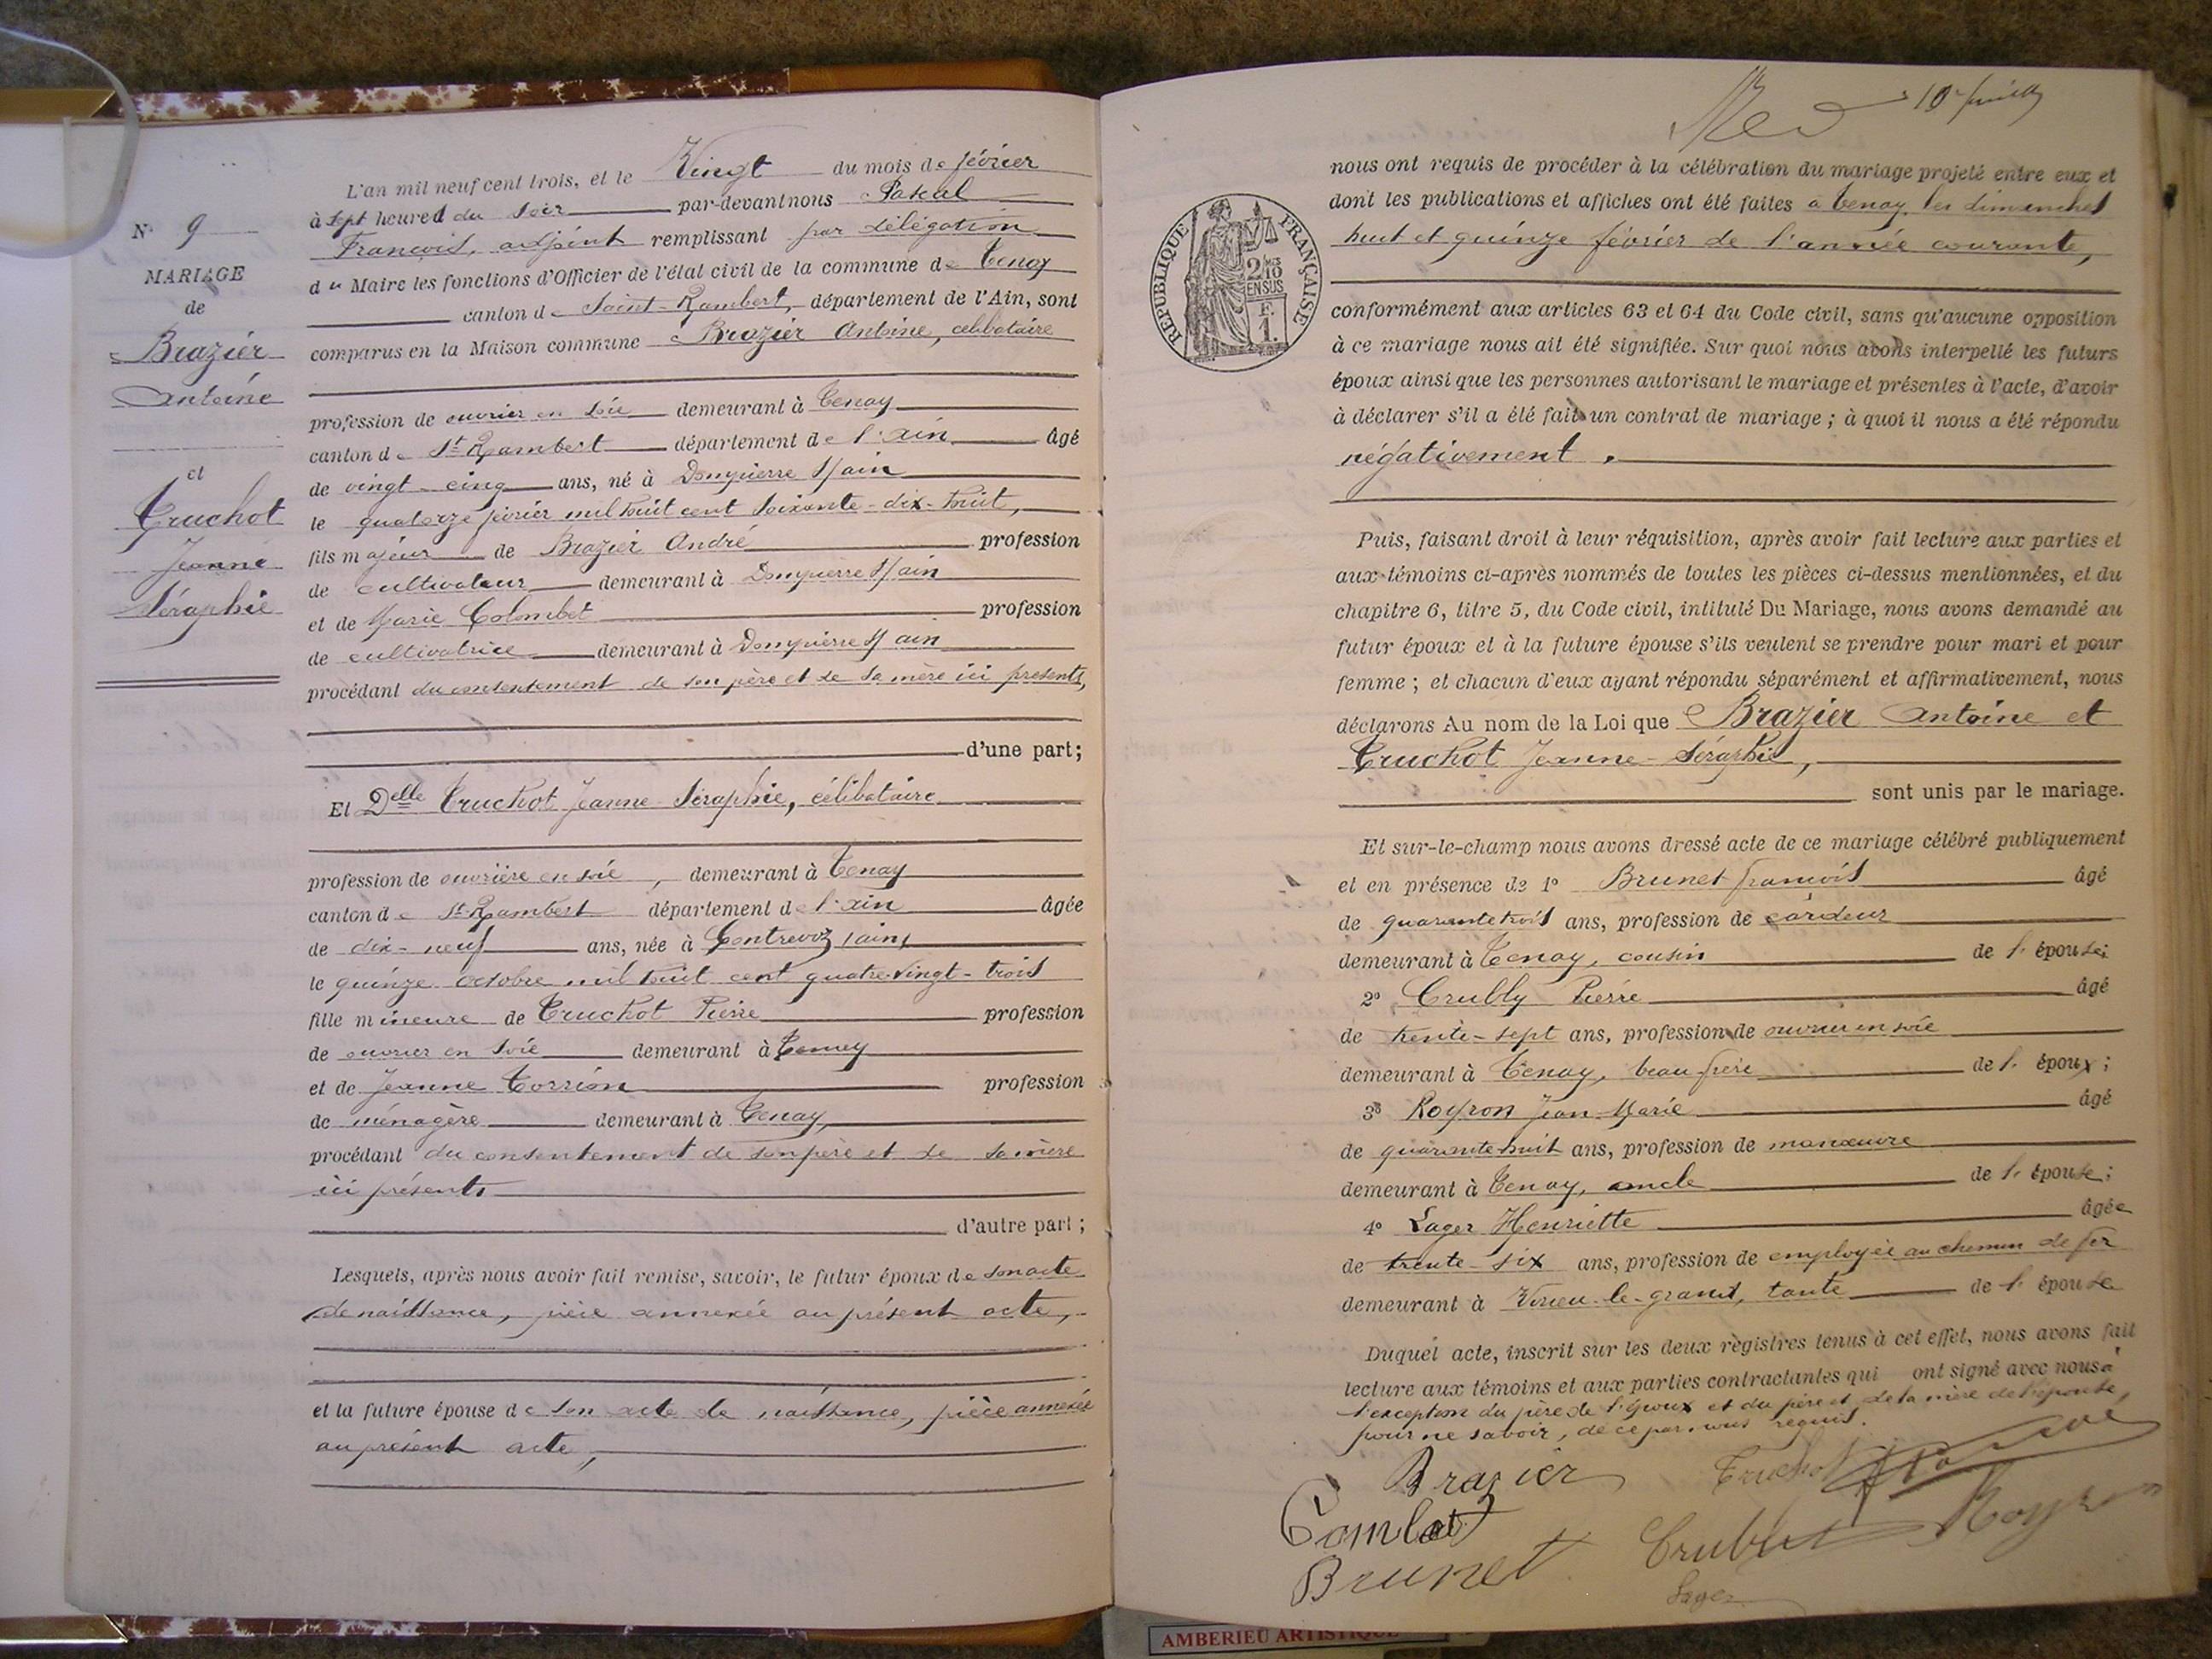 N° 9
MARIAGE
de
Brazier
Antoine
et
Truchot
Jeanne
Séraphie
L'an mil neuf cent trois, et le Vingt du mois de février
à sept heures du soir par-devant nous Pascal
François, adjoint remplissant par délégation
du Maire les fonctions d'Officier de l'état civil de la commune de Tenay
canton de Saint-Rambert, département de l'Ain, sont
comparus en la Maison commune Brazier Antoine, célibataire
profession de ouvrier en soie demeurant à Tenay
canton de St Rambert département de l'Ain âgé
de vingt-cinq ans, né à Dompierre s/ain
le quatorze février mil huit cent soixante-dix-huit,
fils majeur de Brazier André profession
de cultivateur demeurant à Dompierre s/ain
et de Marie Colombet profession
de cultivatrice demeurant à Dompierre s/ain
procédant du consentement de son père et de sa mère ici présents,
d'une part;
Et Delle Truchot Jeanne-Séraphie, célibataire
profession de ouvrière en soie, demeurant à Tenay
canton de St Rambert département de l'Ain âgée
de dix-neuf ans, née à Contrevoz (ain)
le quinze octobre mil huit cent quatre-vingt-trois
fille mineure de Truchot Pierre profession
de ouvrier en soie demeurant à Tenay
et de Jeanne Torrion profession
de ménagère demeurant à Tenay,
procédant du consentement de son père et de sa mère
ici présents
d'autre part;
Lesquels, après nous avoir fait remise, savoir, le futur époux de son acte
de naissance, pièce annexée au présent acte,
et la future épouse de son acte de naissance, pièce annexée
au présent acte,
10
RÉPUBLIQUE FRANÇAISE
2/10
EN SUS
F.
1.
nous ont requis de procéder à la célébration du mariage projeté entre eux et
dont les publications et affiches ont été faites à Tenay les dimanches
huit et quinze février de l'année courante,
conformément aux articles 63 et 64 du Code civil, sans qu'aucune opposition
à ce mariage nous ait été signifiée. Sur quoi nous avons interpellé les futurs
époux ainsi que les personnes autorisant le mariage et présentes à l'acte, d'avoir
à déclarer s'il a été fait un contrat de mariage; à quoi il nous a été répondu
négativement.
Puis, faisant droit à leur réquisition, après avoir fait lecture aux parties et
aux témoins ci-après nommés de toutes les pièces ci-dessus mentionnées, et du
chapitre 6, titre 5, du Code civil, intitulé Du Mariage, nous avons demandé au
futur époux et à la future épouse s'ils veulent se prendre pour mari et pour
femme; et chacun d'eux ayant répondu séparément et affirmativement, nous
déclarons Au nom de la Loi que Brazier Antoine et
Truchot Jeanne-Séraphie,
sont unis par le mariage.
Et sur-le-champ nous avons dressé acte de ce mariage célébré publiquement
et en présence de 1° Brunet françois âgé
de quarante trois ans, profession de cardeur
demeurant à Tenay, cousin de l'épouse;
2° Crubly Pierre âgé
de trente-sept ans, profession de ouvrier en soie
demeurant à Tenay, beau-frère de l'époux;
3° Royron Jean-Marie âgé
de quarante huit ans, profession de manœuvre
demeurant à Tenay, oncle de l'épouse;
4° Lager Henriette âgée
de trente-six ans, profession de employée au chemin de fer
demeurant à Virieu-le-grand, tante de l'épouse
Duquel acte, inscrit sur les deux registres tenus à cet effet, nous avons fait
lecture aux témoins et aux parties contractantes qui ont signé avec nous à
l'exception du père de l'époux et du père et de la mère de l'épouse,
pour ne savoir, de ce par nous requis.
Brazier Truchot
Brunet
Lager
AMBERIEU ARTISTIQUE